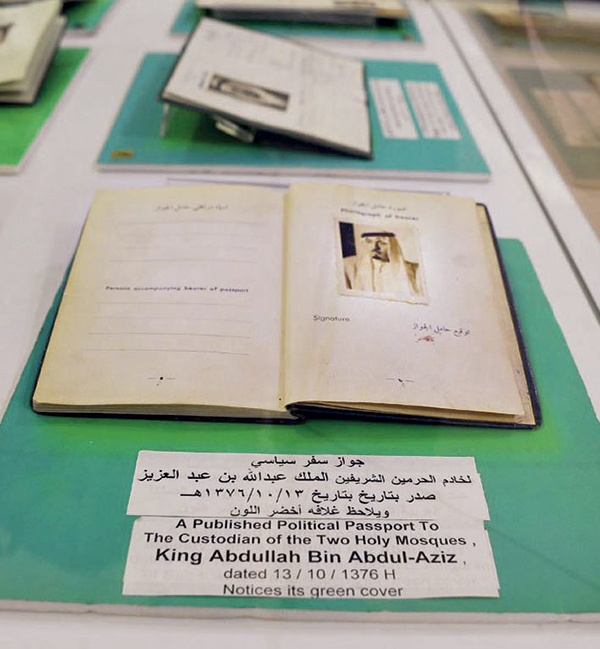 اسماء مرافقي حامل الجواز
Persons accompanying bearer of passport
صورة حامل الجواز
Photograph of bearer
Signature
توقيع حامل الجواز
جواز سفر سياسي
لخادم الحرمين الشريفين الملك عبدالله بن عبد العزيز
صدر بتاريخ بتاريخ ١٣٧٦/١٠/١٣هـ
ويلاحظ غلافه أخضر اللون
A Published Political Passport To
The Custodian of the Two Holy Mosques ,
King Abdullah Bin Abdul-Aziz ,
dated 13 / 10 / 1376 H
Notices its green cover